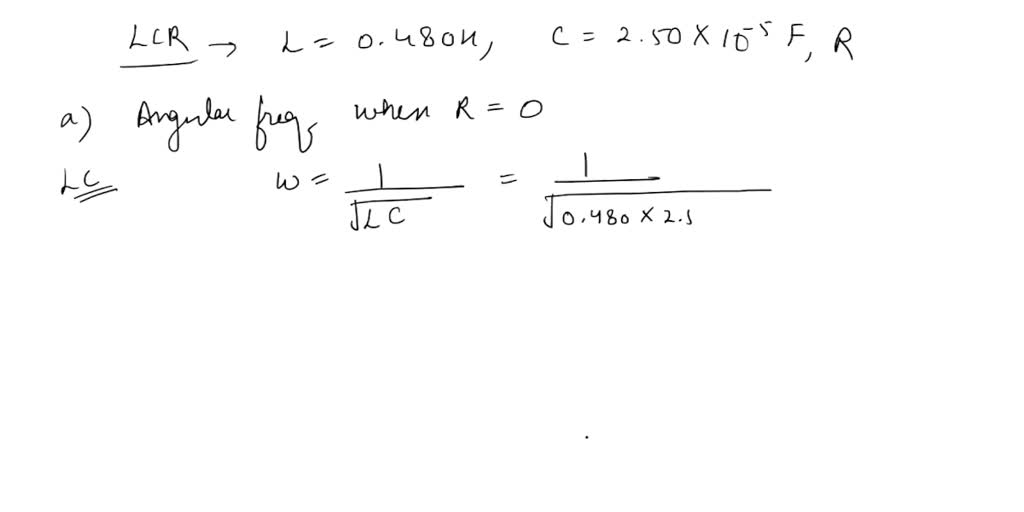 LCR → L = 0.480H, C = 2.50 × 10⁻⁵ F, R
a) Angular freq when R = 0
LC ω = 1/√LC = 1/√0.480 × 2.5